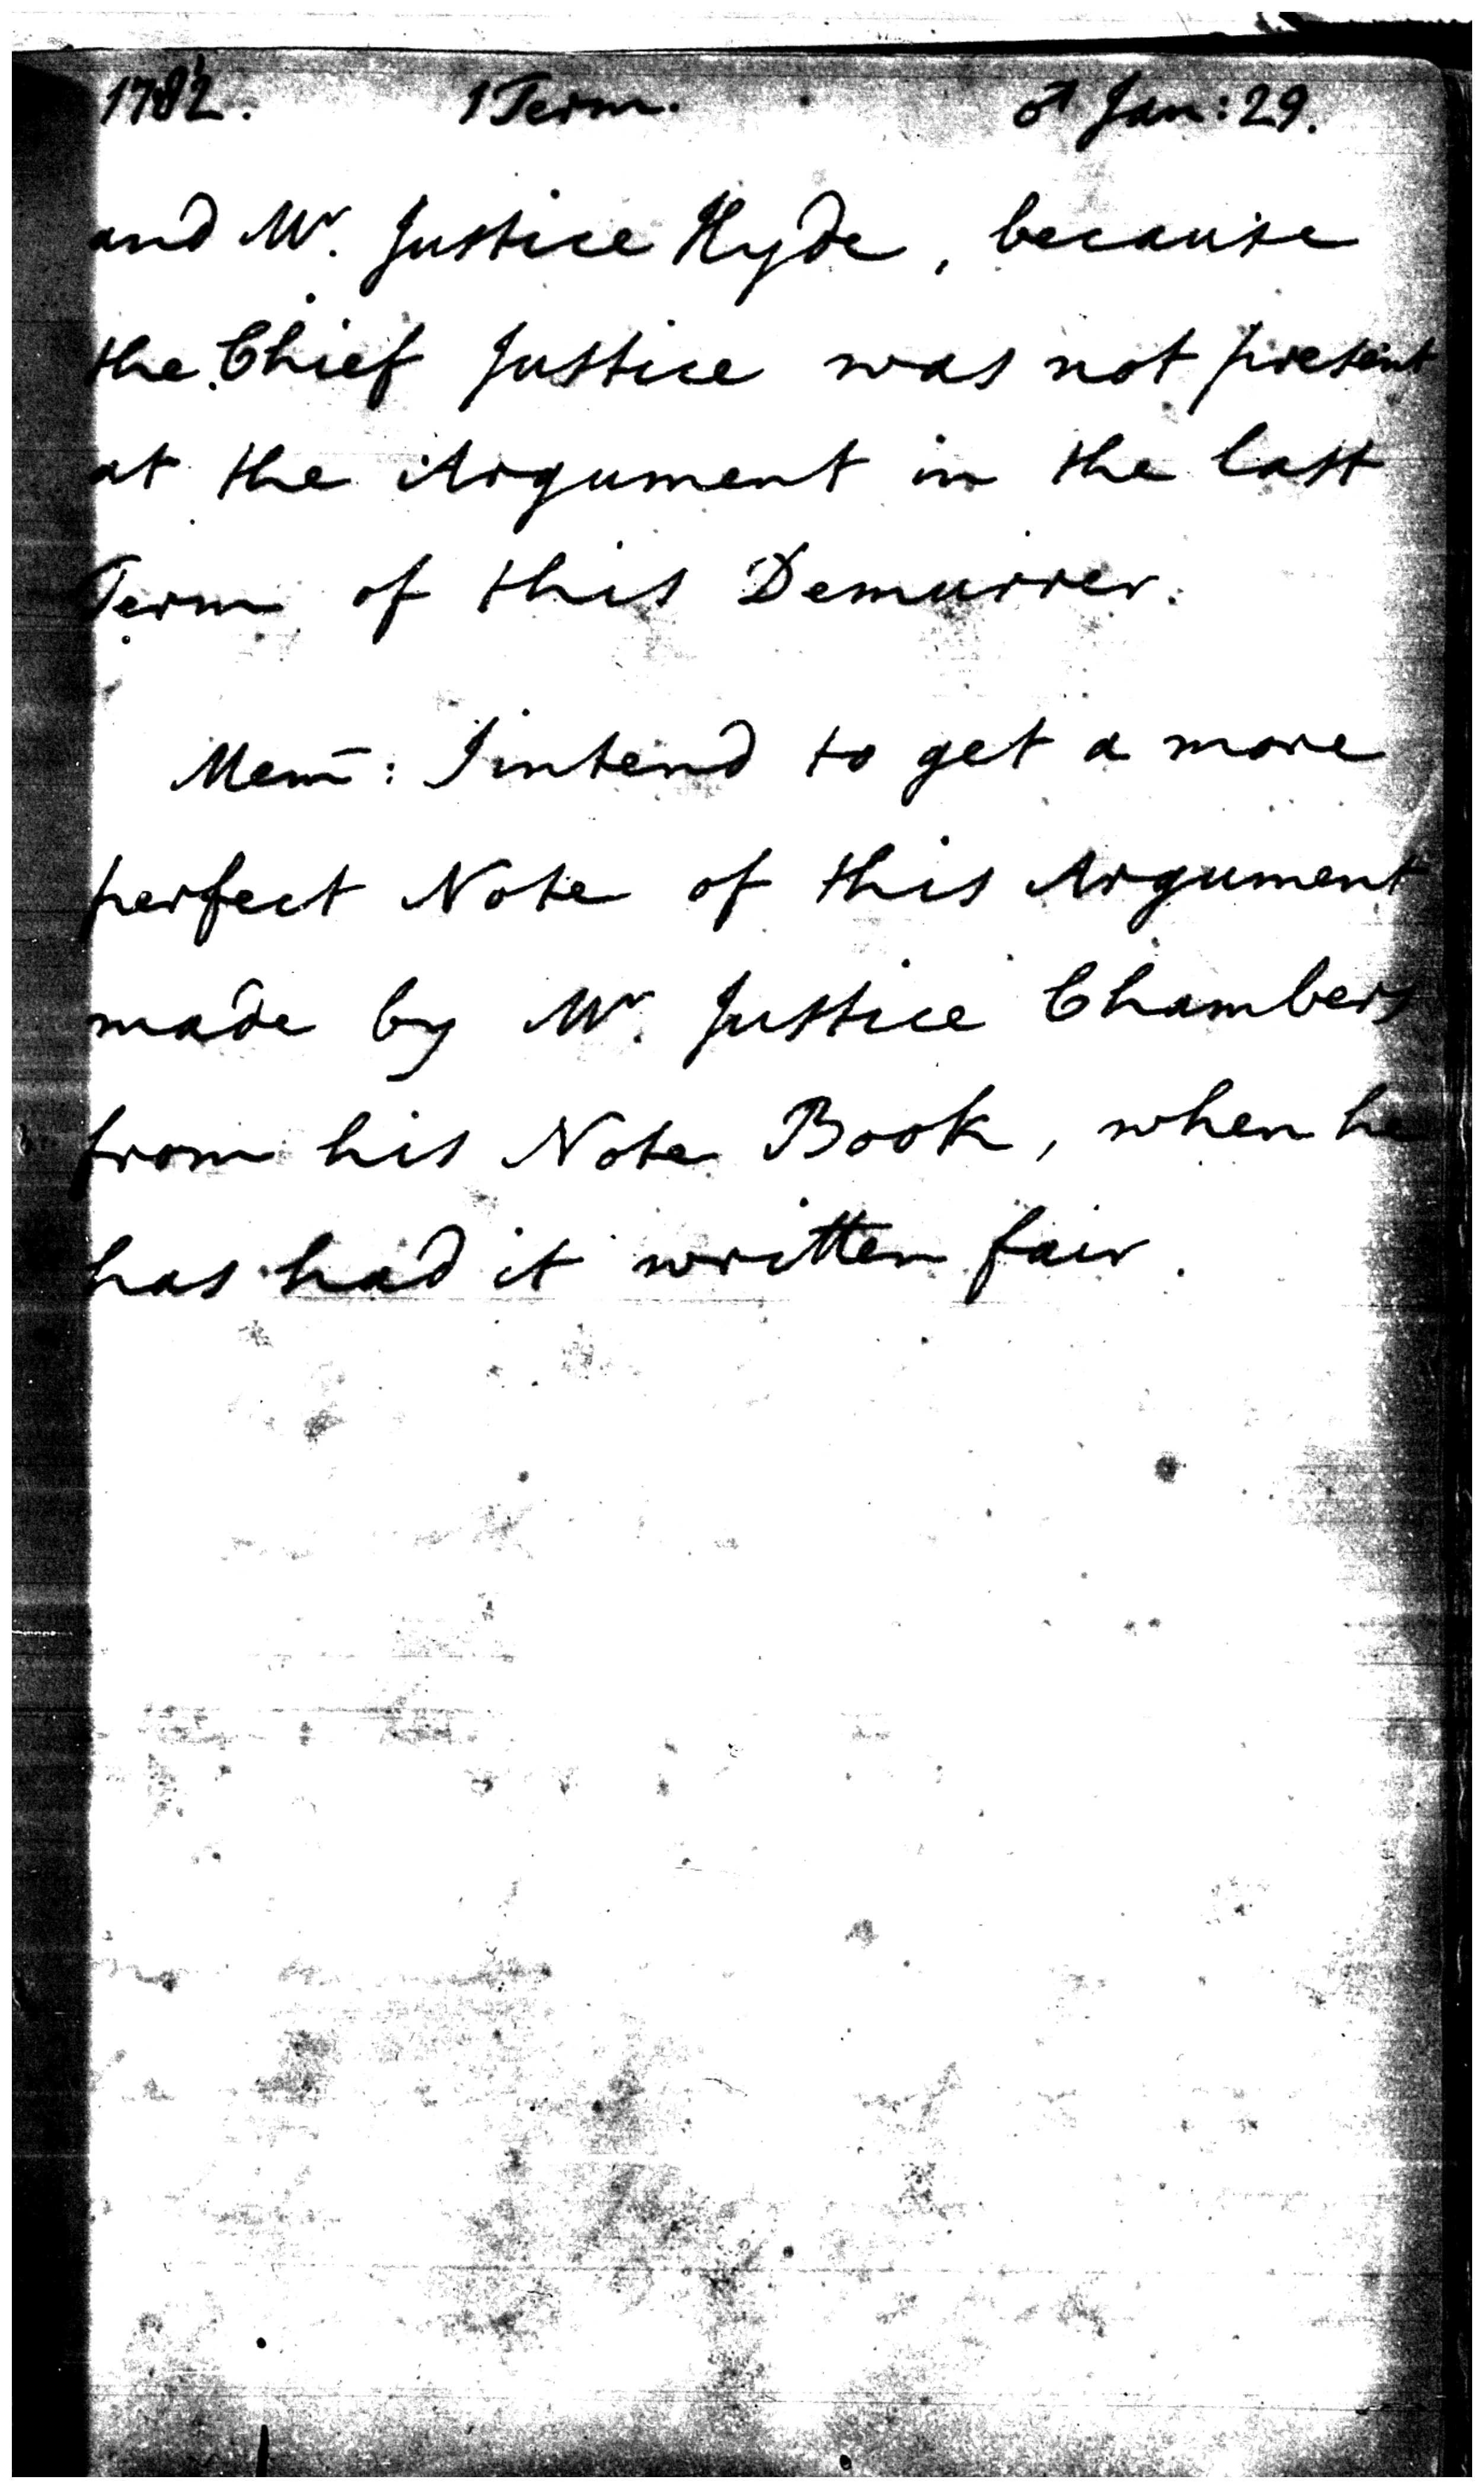 1782. 1 Term. ♂ Jan: 29.
and Mr. Justice Hyde, because
the Chief Justice was not present
at the Argument in the last
Term of this Demurrer.
Mem̄: I intend to get a more
perfect Note of this Argument
made by Mr. Justice Chambers
from his Note Book, when he
has had it written fair.